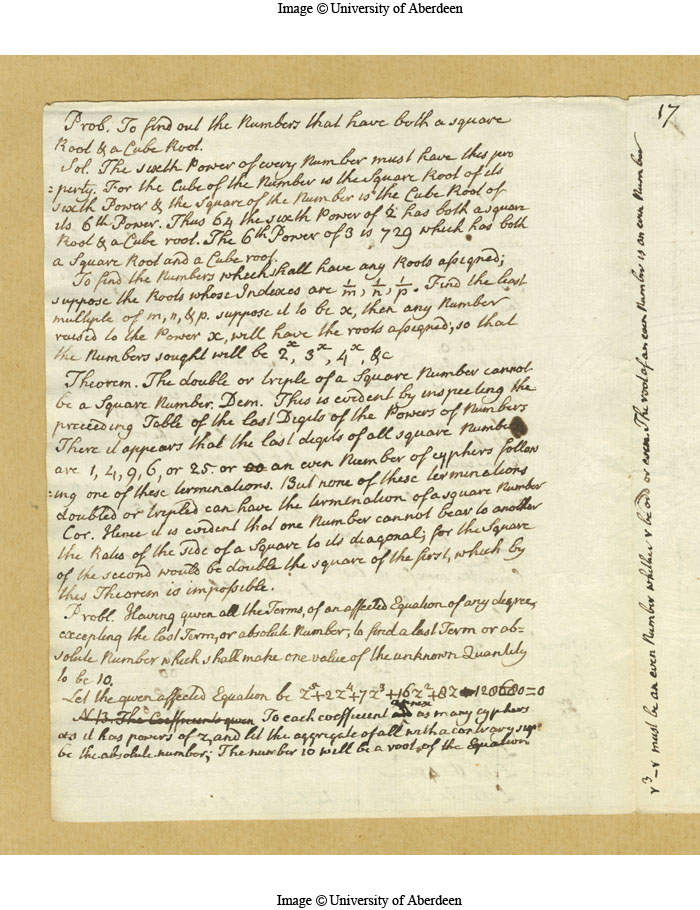 Image © University of Aberdeen
17
Prob. To find out the Numbers that have both a square
Root & a Cube Root.
Sol. The sixth Power of every Number must have this pro
=perty. For the Cube of the Number is the Square Root of its
sixth Power & the Square of the Number is the Cube Root of
its 6th Power. Thus 64 the sixth Power of 2 has both a square
Root & a Cube root. The 6th Power of 3 is 729 which has both
a Square Root and a Cube root.
To find the Numbers which shall have any Roots assigned;
suppose the Roots whose Indexes are 1/m, 1/n, 1/p. Find the least
multiple of m, n, & p. suppose it to be x, then any Number
raised to the Power x, will have the roots assigned; so that
the Numbers sought will be 2^x, 3^x, 4^x, &c
Theorem. The double or triple of a Square Number cannot
be a Square Number. Dem. This is evident by inspecting the
preceeding Table of the last Digits of the Powers of Numbers
There it appears that the last digits of all square Numbers
are 1, 4, 9, 6, or 25. or an even Number of cyphers follow
=ing one of these terminations. But none of these terminations
doubled or tripled can have the termination of a square Number
Cor. Hence it is evident that one Number cannot bear to another
the Ratio of the side of a Square to its diagonal; for the Square
of the second would be double the square of the first, which by
this Theorem is impossible.
Probl. Having given all the Terms, of an affected Equation of any degree,
excepting the last Term, or absolute Number, to find a last Term or ab-
solute Number which shall make one value of the unknown Quantity
to be 10.
Let the given affected Equation be z^5+2z^4+7z^3+16z^2+8z-128680=0
N B. The Coefficients given To each coefficient annex as many cyphers
as it has powers of z, and let the aggregate of all with a contrary sign
be the absolute number; The number 10 will be a root of the Equation
r^3-r must be an even Number whither r be odd or even. The root of an even Number is an even Number
Image © University of Aberdeen